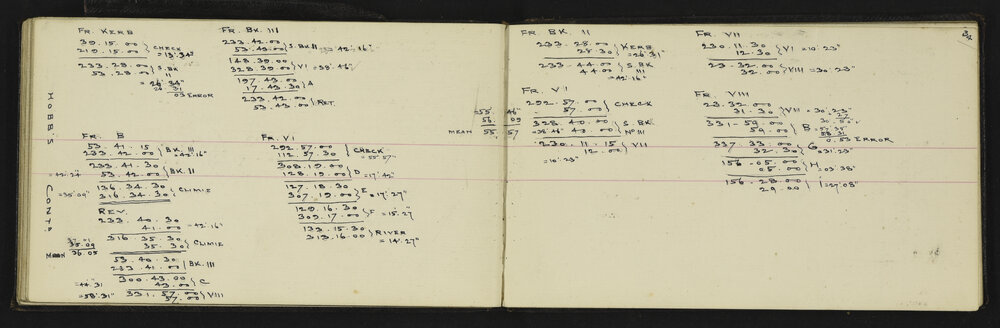 HOBB'S CONT?
FR. KERB
39.15.00
219.15.00 } CHECK = 13'34"
233.28.00
53.28.00 } S.BK II = 26'34"
26.31
03 ERROR
FR. BK. III
233.42.00
53.42.00 } S.BK.II = 42'16"
148.39.00
328.39.00 } VI = 38'46"
197.43.00
17.43.30 } A
233.42.00
53.43.00 } RET.
FR. B
53.41.15
233.42.00 } BK. III = 42'16"
233.41.30
53.42.00 } BK. II
136.34.30
316.34.30 } CLIMIE
= 35'09"
REV.
233.40.30
41.00
= 42'16"
316.35.30
35.30 } CLIMIE
35.09
MEAN 36.05
53.40.30
233.41.00 } BK. III
300.43.00
43.00 } C
= 44'31
= 58'31"
331.57.00
57.00 } VIII
FR. VI
292.57.00
112.57.30 } CHECK = 55'57"
308.19.00
128.19.00 } D = 17'42"
127.18.30
307.19.00 } E = 17'27"
129.16.30
309.17.00 } F = 15'27
133.15.30
313.16.00 } RIVER = 14'27"
34
FR. BK. II
233.28.00
28.30 } KERB = 26'31"
233.44.00
44.00 } S.BK III = 42'16"
FR. VI
292.57.00
57.00 } CHECK
= 55' 46"
56 09
MEAN 55. 57
328.40.00
= 38'46" 43.00 } S.BK. Nº III
230.11.15
12.00 } VII
= 10'23"
FR. VII
230.11.30
12.30 } VI = 10'23"
23.32.00
32.00 } VIII = 30'23"
FR. VIII
23.32.00
31.30 } VII = 30'23"
331.59.00
59.00 } B = 57'35
58.31
0.53 ERROR
337.33.00
32.30 } G = 31'23"
156.05.00
05.00 } H = 03'38"
156.28.00
29.00 } I = 27'08"